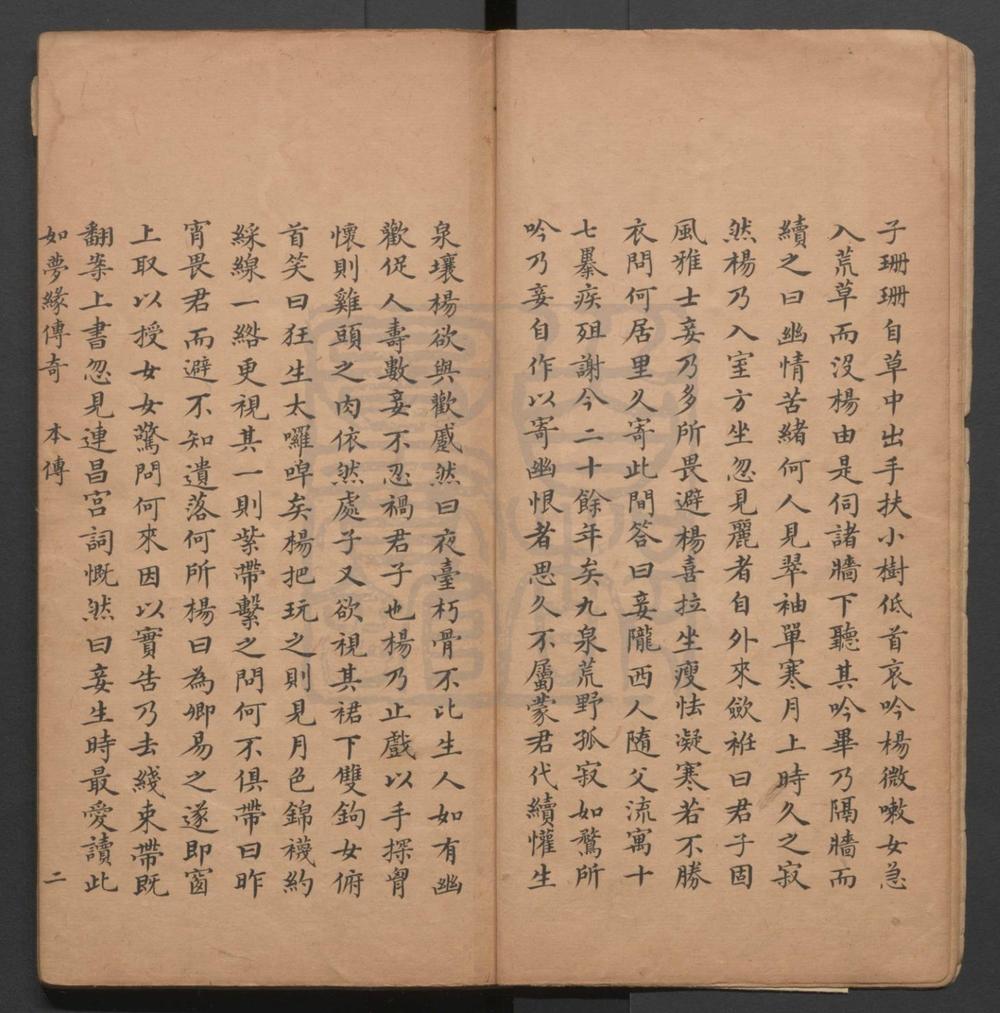 子珊珊自草中出手扶小樹低首哀吟楊微嗽女急
入荒草而沒楊由是伺諸牆下聽其吟畢乃隔牆而
續之曰幽情苦緒何人見翠袖單寒月上時久之寂
然楊乃入室方坐忽見麗者自外來斂袵曰君子固
風雅士妾乃多所畏避楊喜拉坐瘦怯凝寒若不勝
衣問何居里久寄此間答曰妾隴西人隨父流寓十
七暴疾殂謝今二十餘年矣九泉荒野孤寂如鶩所
吟乃妾自作以寄幽恨者思久不屬蒙君代續懽生
泉壤楊欲與歡蹙然曰夜臺朽骨不比生人如有幽
歡促人壽數妾不忍禍君子也楊乃止戲以手探胷
懷則雞頭之肉依然處子又欲視其裙下雙鉤女俯
首笑曰狂生太囉唣矣楊把玩之則見月色錦襪約
綵線一綹更視其一則紫帶繫之問何不俱帶曰昨
宵畏君而避不知遺落何所楊曰為卿易之遂即窗
上取以授女女驚問何來因以實告乃去綫束帶既
翻案上書忽見連昌宮詞慨然曰妾生時最愛讀此
如夢緣傳奇 本傳 二